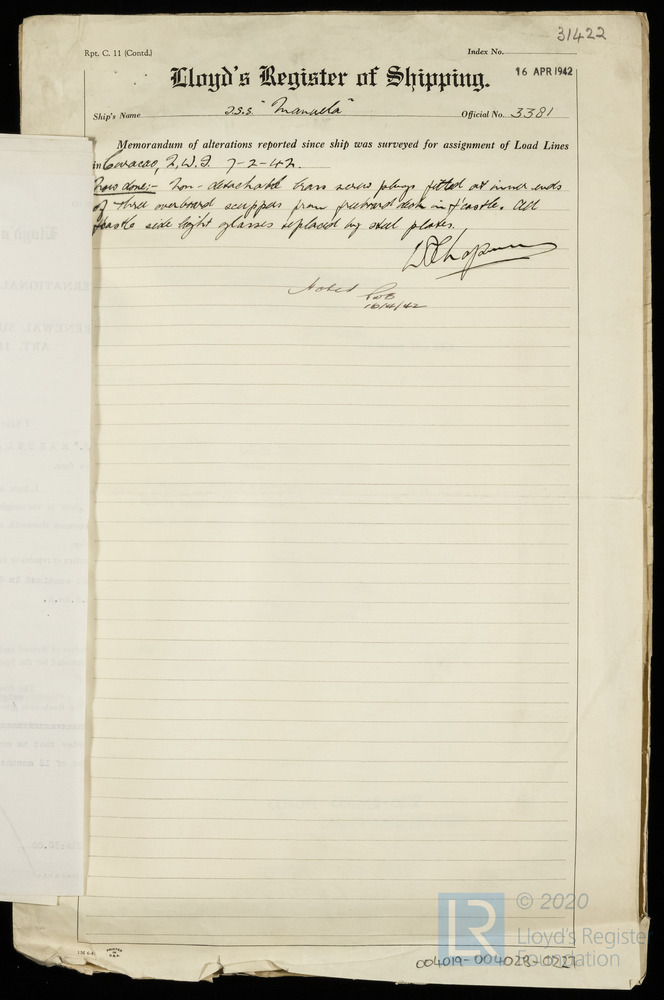 31422
Rpt. C. 11 (Contd.)
Index No.
Lloyd's Register of Shipping.
16 APR 1942
Ship's Name "Manuela"
Official No. 3381
Memorandum of alterations reported since ship was surveyed for assignment of Load Lines
in Curacao, N.W.I. 7-2-42.
Now done:- Non-detachable brass screw plugs fitted at inner ends
of three overboard scuppers from freeboard deck in f'castle. All
f'castle side light glasses replaced by steel plates.
Noted
16/4/42
© 2020
LR
Lloyd's Register
Foundation
004019-004028-0221